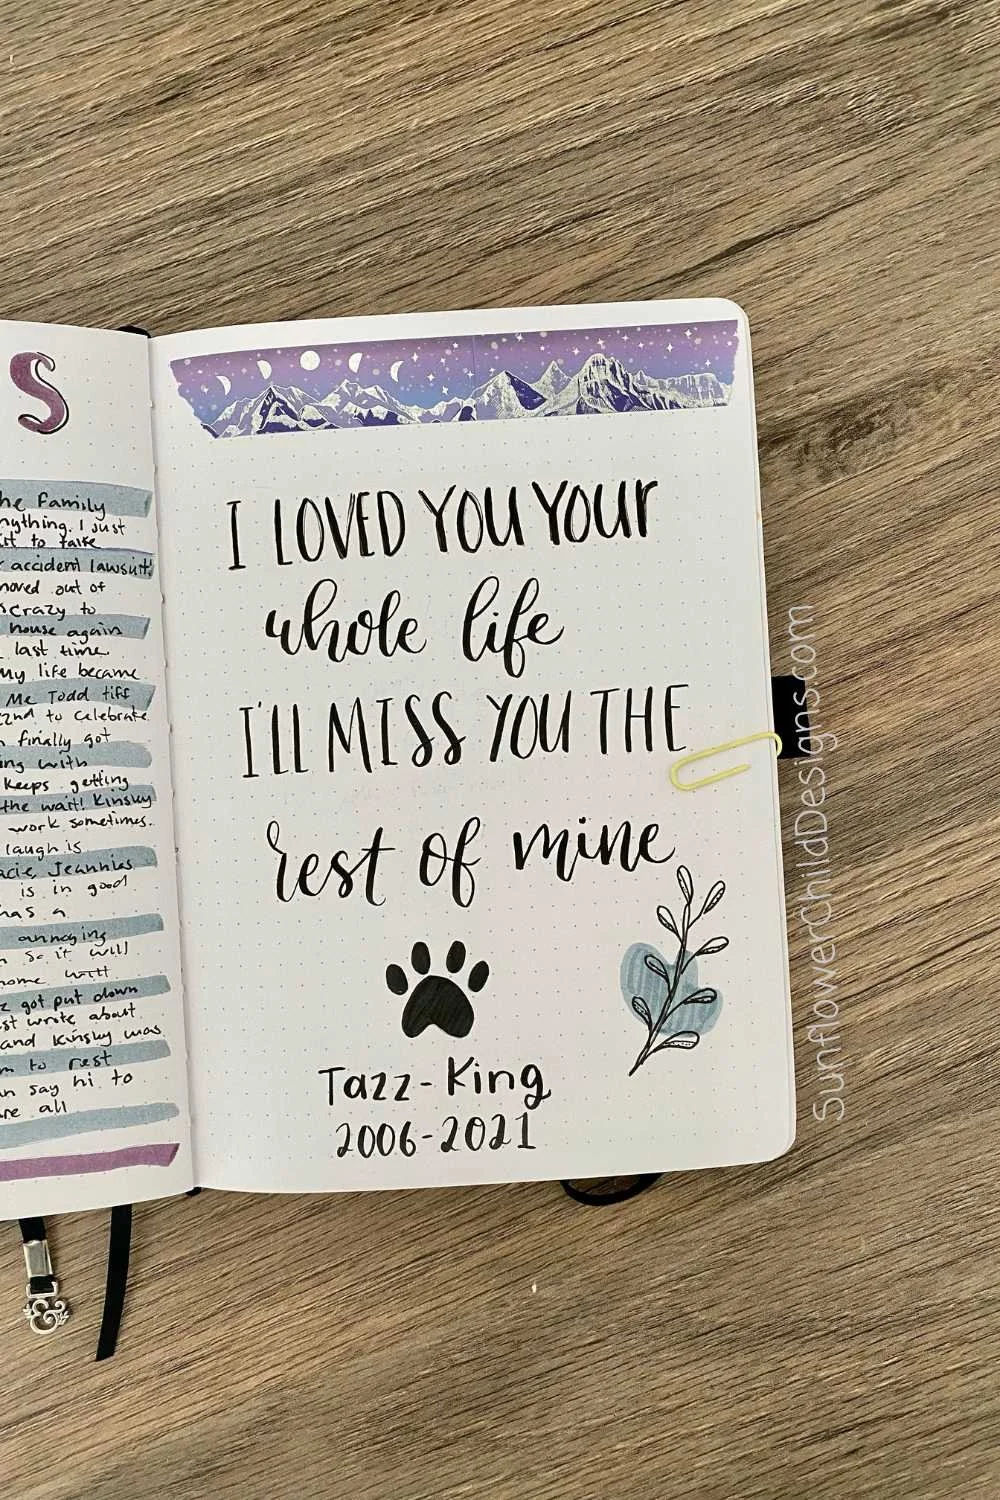 S
he family
nything. I just
it to take
r accident lawsuit!
moved out of
s crazy to
house again
last time.
My life became
Me Todd tiff
22nd to celebrate.
n finally got
ing with
keeps getting
the wait! Kinsky
work sometimes.
laugh is
acie, Jeannies
is in good
has a
annoying
so it will
home with
z got put down
st wrote about
and Kinsky was
m to rest
an say hi to
are all
I LOVED YOU YOUR
whole life
I'LL MISS YOU THE
rest of mine
Tazz-King
2006-2021
SunflowerChildDesigns.com